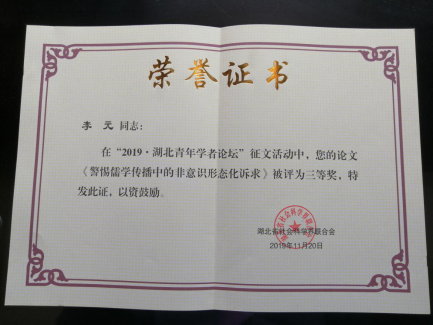 荣誉证书
李元同志：
在“2019·湖北青年学者论坛”征文活动中，您的论文
《警惕儒学传播中的非意识形态化诉求》被评为三等奖，特
发此证，以资鼓励。
湖北省社会科学界联合会
2019年11月20日